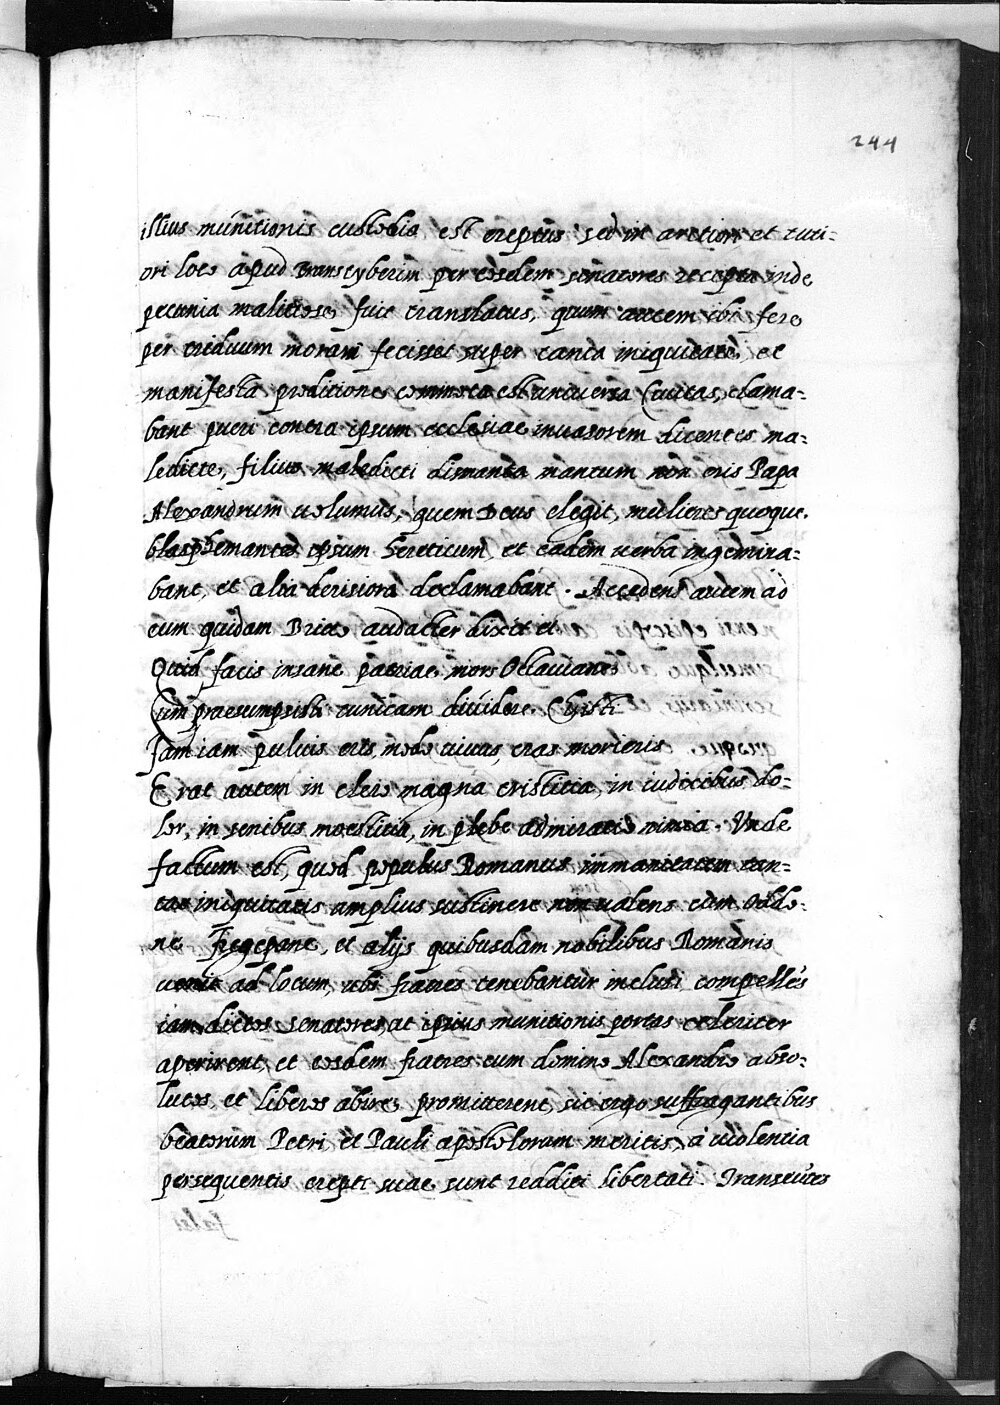 244
illius munitionis custodia est ereptus sed in arctiori et tuti-
ori loco apud Transtyberim per eosdem senatores recepta inde
pecunia malitiose fuit translatus, quum autem ibi fere
per triduum moram fecisset super tanta iniquitate, et
manifesta proditione commota est universa Civitas, clama-
bant pueri contra ipsum ecclesiae invasorem dicentes ma-
ledicte, filius maledicti dimanta mantum non eris Papa
Alexandrum volumus, quem Deus elegit, mulieres quoque
blasphemantes ipsum hereticum, et eadem verba ingemina-
bant, et alia derisiora declamabant. Accedens autem ad
eum quidam Brito audacter dixit ei
Quid facis insane patriae mors Octaviane
Cur praesumpsisti tunicam dividere Christi
Jam iam pulvis eris, modo vivas, cras morieris
Erat autem in clero magna tristitia, in iudicibus do-
lor, in senibus moestitia, in plebe admiratio nimia. Unde
factum est, quod populus Romanus immanitatem tan-
tae iniquitatis amplius sustinere non valens cum Oddo-
ne Fregepane, et alijs quibusdam nobilibus Romanis
venit ad locum, ubi fratres tenebantur inclusi compellēs
iam dictos senatores, ut ipsius munitionis portas celeriter
aperirent, et eosdem fratres cum domino Alexandro abso-
lutos, et liberos abire promitterent, sic ergo suffragantibus
beatorum Petri et Pauli apostolorum meritis, à violentia
persequentis erepti suae sunt redditi libertati. Transeūtes